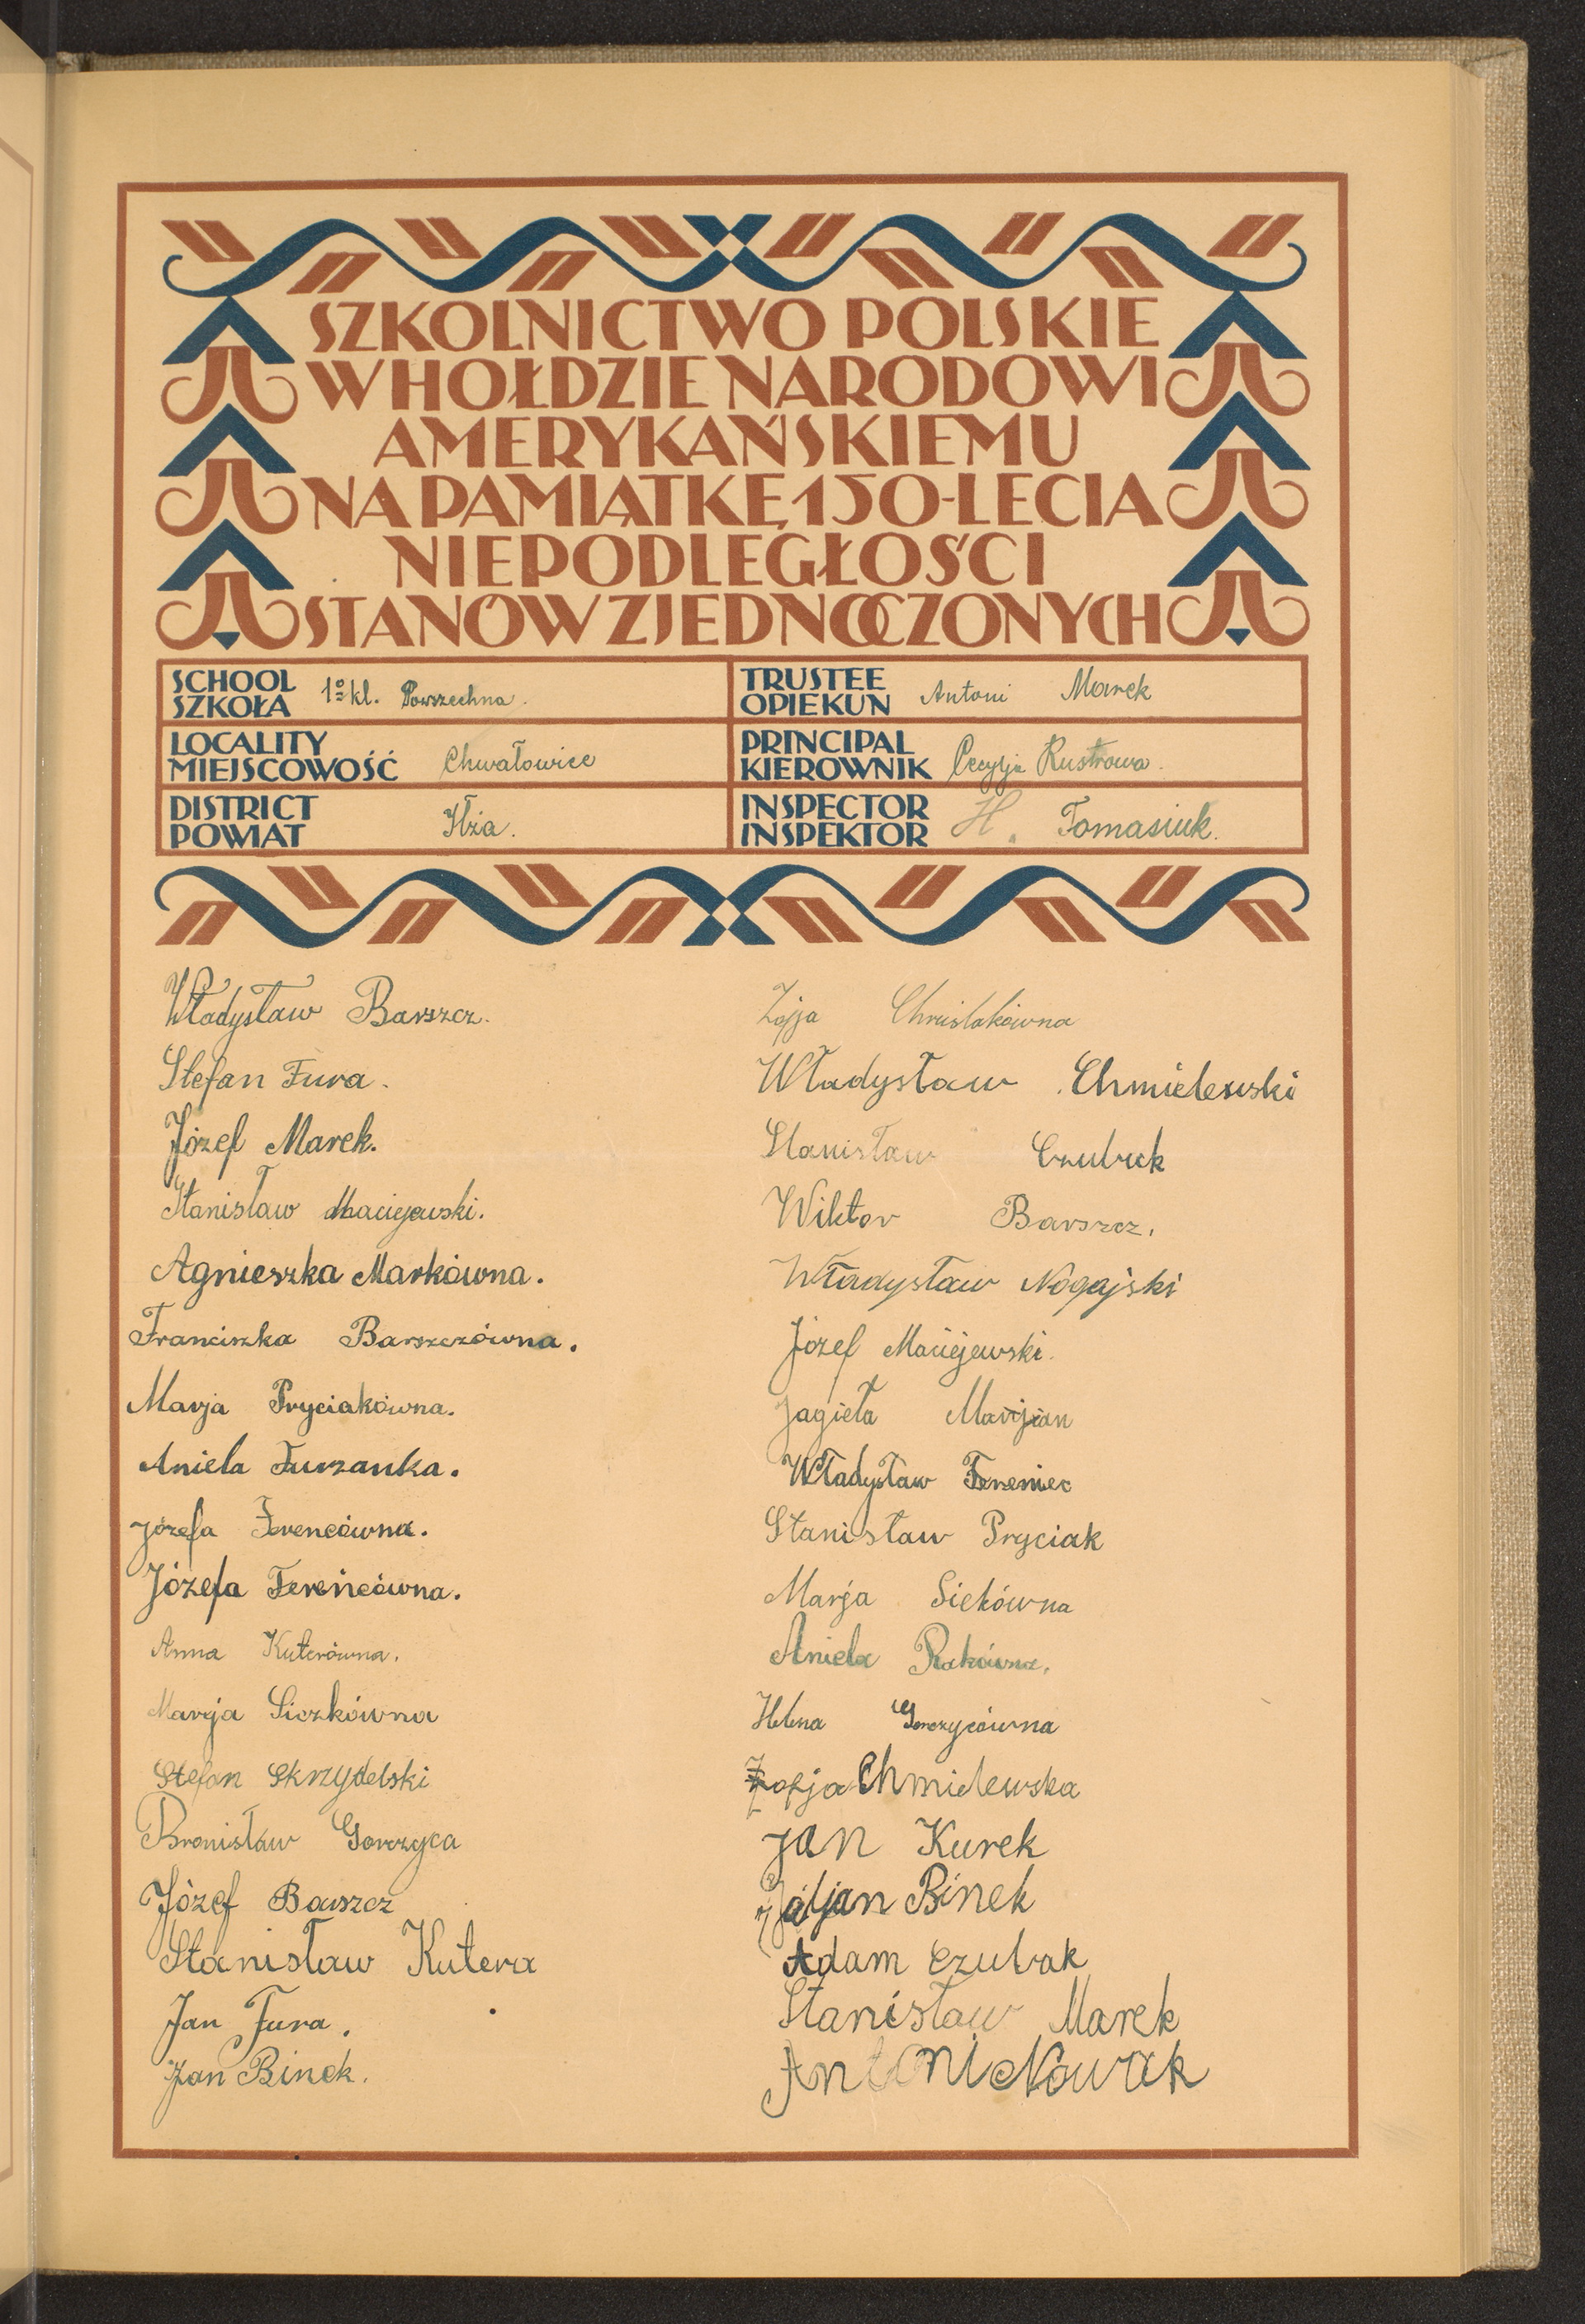 SZKOLNICTWO POLSKIE
W HOŁDZIE NARODOWI
AMERYKAŃSKIEMU
NA PAMIĄTKĘ 150-LECIA
NIEPODLEGŁOŚCI
STANÓW ZJEDNOCZONYCH
SCHOOL
SZKOŁA 1o kl. Powszechna.
TRUSTEE
OPIEKUN Antoni Marek
LOCALITY
MIEJSCOWOŚĆ Chwałowice
PRINCIPAL
KIEROWNIK Cecylja Kustrowa.
DISTRICT
POWIAT Iłża.
INSPECTOR
INSPEKTOR H. Tomasiuk.
Władysław Barszcz.
Stefan Fura.
Józef Marek.
Stanisław Maciejewski.
Agnieszka Markówna.
Franciszka Barszczówna.
Marja Pryciakówna.
Aniela Furzanka.
Józefa Ferencówna.
Józefa Fereńcówna.
Anna Kuterówna.
Marja Siczkówna
Stefan Skrzydelski
Bronisław Gorczyca
Józef Barszcz
Stanisław Kutera
Jan Fura.
Jan Binek.
Zofja Chruślakówna
Władysław Chmielewski
Stanisław Czubak
Wiktor Barszcz.
Władysław Nogajski
Józef Maciejewski.
Jagieła Marjan
Władysław
Stanisław Pryciak
Marja Siekówna
Aniela Rakówna.
Helena Gorczycówna
Zofja Chmielewska
Jan Kurek
Binek
Adam Czubak
Stanisław Marek
Antoni Nowak